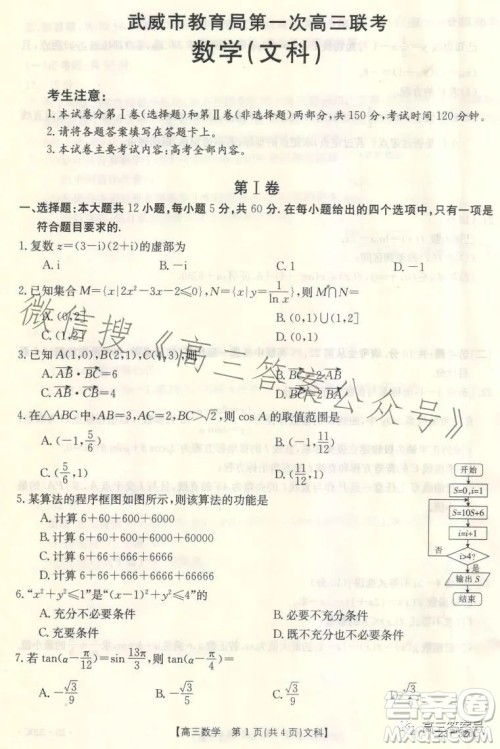 武威市教育局第一次高三联考
数学(文科)
考生注意:
1.本试卷分第Ⅰ卷(选择题)和第Ⅱ卷(非选择题)两部分,共150分,考试时间120分钟.
2.请将各题答案填写在答题卡上.
3.本试卷主要考试内容:高考全部内容.
第Ⅰ卷
一、选择题:本大题共12小题,每小题5分,共60分.在每小题给出的四个选项中,只有一项是
符合题目要求的.
1.复数z=(3-i)(2+i)的虚部为
A.i B.1 C.7 D.-1
2.已知集合M={x|2x²-3x-2≤0},N={x|y=1/ln x},则M∩N=
A.(1,2] B.(0,1)∪(1,2]
C.(1,2) D.(0,1)
3.已知A(1,0),B(2,1),C(6,3),则
A.AB·BC=6
C.AB·BC=4
4.在△ABC中,AB=3,AC=2,BC>√2,则cos A的取值范围是
A.(-1,5/6) B.(-1,11/12)
C.(5/6,1) D.(11/12,1)
5.某算法的程序框图如图所示,则该算法的功能是
A.计算6+60+600+6000
B.计算6+66+666+6666
C.计算6+60+600
D.计算6+66+666
开始
S=0,i=1
S=10S+6
i=i+1
i>4?
是
否
输出S
结束
6.“x²+y²≤1”是“(x-1)²+y²≤4”的
A.充分不必要条件 B.必要不充分条件
C.充要条件 D.既不充分也不必要条件
7.若tan(α-π/12)=sin 13π/3,则tan(α-π/3)=
A.-√3/9 B.√3/9 C.√3/3 D.-√3/3
【高三数学 第1页(共4页)文科】
微信搜《高三答案公众号》
高三答案号